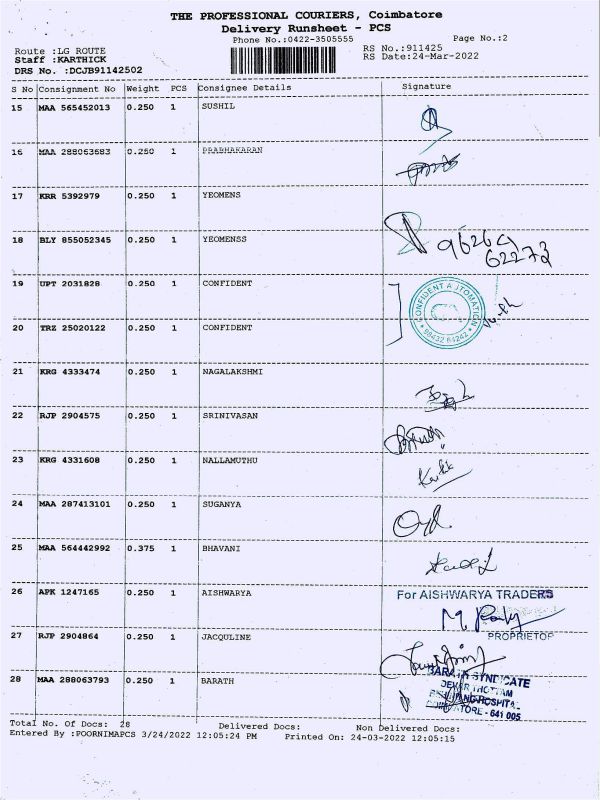 THE PROFESSIONAL COURIERS, Coimbatore
Delivery Runsheet - PCS
Phone No.:0422-3505555 Page No.:2
Route :LG ROUTE RS No.:911425
Staff :KARTHICK RS Date:24-Mar-2022
DRS No. :DCJB91142502
S No Consignment No Weight PCS Consignee Details Signature
15 MAA 565452013 0.250 1 SUSHIL
16 MAA 288063683 0.250 1 PRABHAKARAN
17 KRR 5392979 0.250 1 YEOMENS
18 BLY 855052345 0.250 1 YEOMENSS
96269
62273
19 UPT 2031828 0.250 1 CONFIDENT
CONFIDENT AUTOMATION
98432 64242
20 TRZ 25020122 0.250 1 CONFIDENT
21 KRG 4333474 0.250 1 NAGALAKSHMI
22 RJP 2904575 0.250 1 SRINIVASAN
23 KRG 4331608 0.250 1 NALLAMUTHU
24 MAA 287413101 0.250 1 SUGANYA
25 MAA 564442992 0.375 1 BHAVANI
26 APK 1247165 0.250 1 AISHWARYA
For AISHWARYA TRADERS
27 RJP 2904864 0.250 1 JACQULINE
PROPRIETOP
28 MAA 288063793 0.250 1 BARATH
SYNDICATE
HOSPITAL
- 641 005
Total No. Of Docs: 28 Delivered Docs: Non Delivered Docs:
Entered By :POORNIMAPCS 3/24/2022 12:05:24 PM Printed On: 24-03-2022 12:05:15